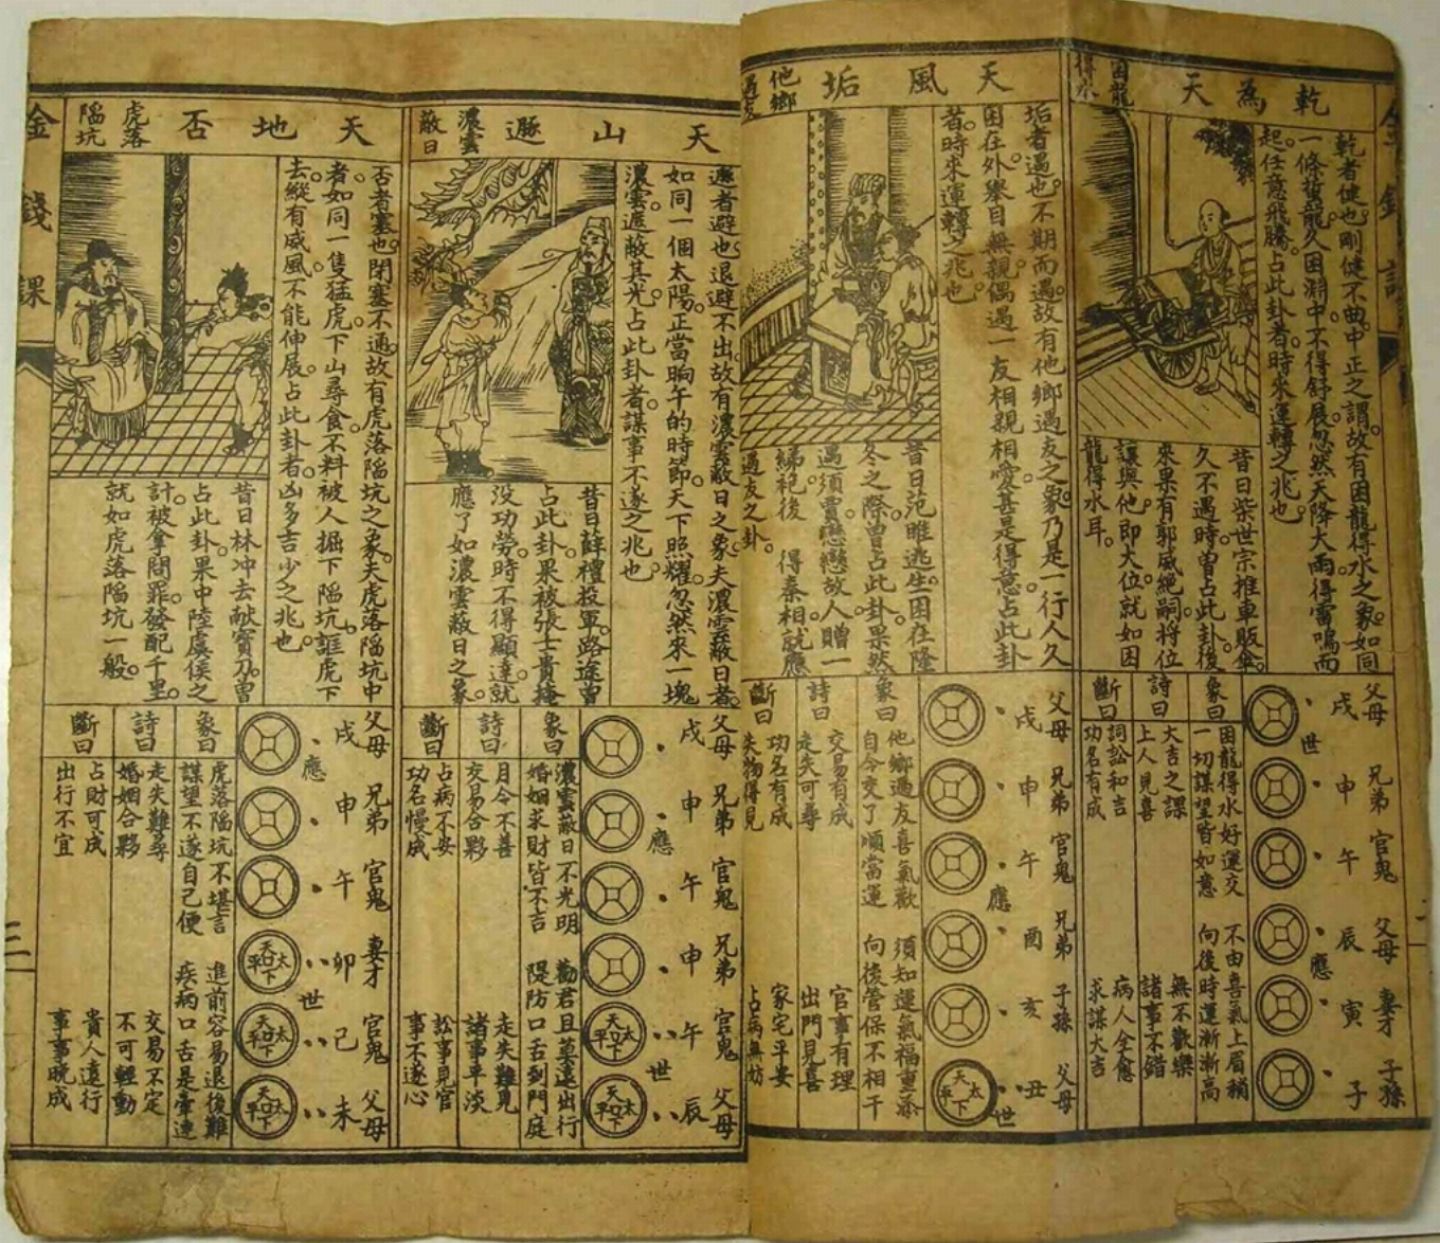 金錢課
乾為天
困龍得水
乾者健也。剛健不曲。中正之謂。故有困龍得水之象。如同
一條蟄龍久困淵中。不得舒展。忽然天降大雨。得雷鳴而
起。任意飛騰。占此卦者。時來運轉之兆也。
昔日柴世宗推車販傘。
久不遇時。曾占此卦。後
來果有郭威絕嗣。將位
讓與他。即大位就如困
龍得水耳。
父母 戌 世
兄弟 申
官鬼 午
父母 辰 應
妻才 寅
子孫 子
象曰
困龍得水好運交 不由喜氣上眉稍
一切謀望皆如意 向後時運漸漸高
詩曰
大吉之課 無不歡樂
上人見喜 諸事不錯
斷曰
詞訟和吉 病人全愈
功名有成 求謀大吉
天風垢
他鄉遇友
垢者遇也。不期而遇。故有他鄉遇友之象。乃是一行人久
困在外。舉目無親。偶遇一友。相親相愛。甚是得意。占此卦
者。時來運轉之兆也。
昔日范睢逃生。困在隆
冬之際。曾占此卦。果然
遇須賈戀戀故人。贈一
綈袍後 得秦相。就應
遇友之卦。
父母 戌
兄弟 申
官鬼 午 應
兄弟 酉
子孫 亥
父母 丑 世
太平天下
象曰
他鄉遇友喜氣歡 須知運氣福重添
自今交了順當運 向後管保不相干
詩曰
交易有成 官事有理
走失可尋 出門見喜
斷曰
功名有成 家宅平安
失物得見 占病無妨
天山遯
濃雲蔽日
遯者避也。退避不出。故有濃雲蔽日之象。夫濃雲蔽日者。
如同一個太陽。正當晌午的時節。天下照耀。忽然來一塊
濃雲遮蔽其光。占此卦者。謀事不遂之兆也。
昔日薛禮投軍。路途曾
占此卦。果被張士貴掩
没功勞。時不得顯達。就
應了如濃雲蔽日之象。
父母 戌
兄弟 申 應
官鬼 午
兄弟 申
官鬼 午 世
父母 辰
太平天下
太平天下
象曰
濃雲蔽日不光明 勸君且莫遠出行
婚姻求財皆不吉 隄防口舌到門庭
詩曰
月令不善 走失難見
交易合夥 諸事平淡
斷曰
占病不安 訟事見官
功名慢成 事不遂心
天地否
虎落陷坑
否者塞也。閉塞不通。故有虎落陷坑之象。夫虎落陷坑中
者。如同一隻猛虎。下山尋食。不料被人掘下陷坑。誆虎下
去。縱有威風。不能伸展。占此卦者。凶多吉少之兆也。
昔日林冲去献寶刀。曾
占此卦。果中陸虞侯之
計。被拿問罪。發配千里。
就如虎落陷坑一般。
父母 戌 應
兄弟 申
官鬼 午
妻才 卯 世
官鬼 己
父母 未
太平天下
太平天下
太平天下
象曰
虎落陷坑不堪言 進前容易退後難
謀望不遂自己便 疾病口舌是牽連
詩曰
走失難尋 交易不定
婚姻合夥 不可輕動
斷曰
占財可成 貴人遠行
出行不宜 事事晚成
金錢課
三